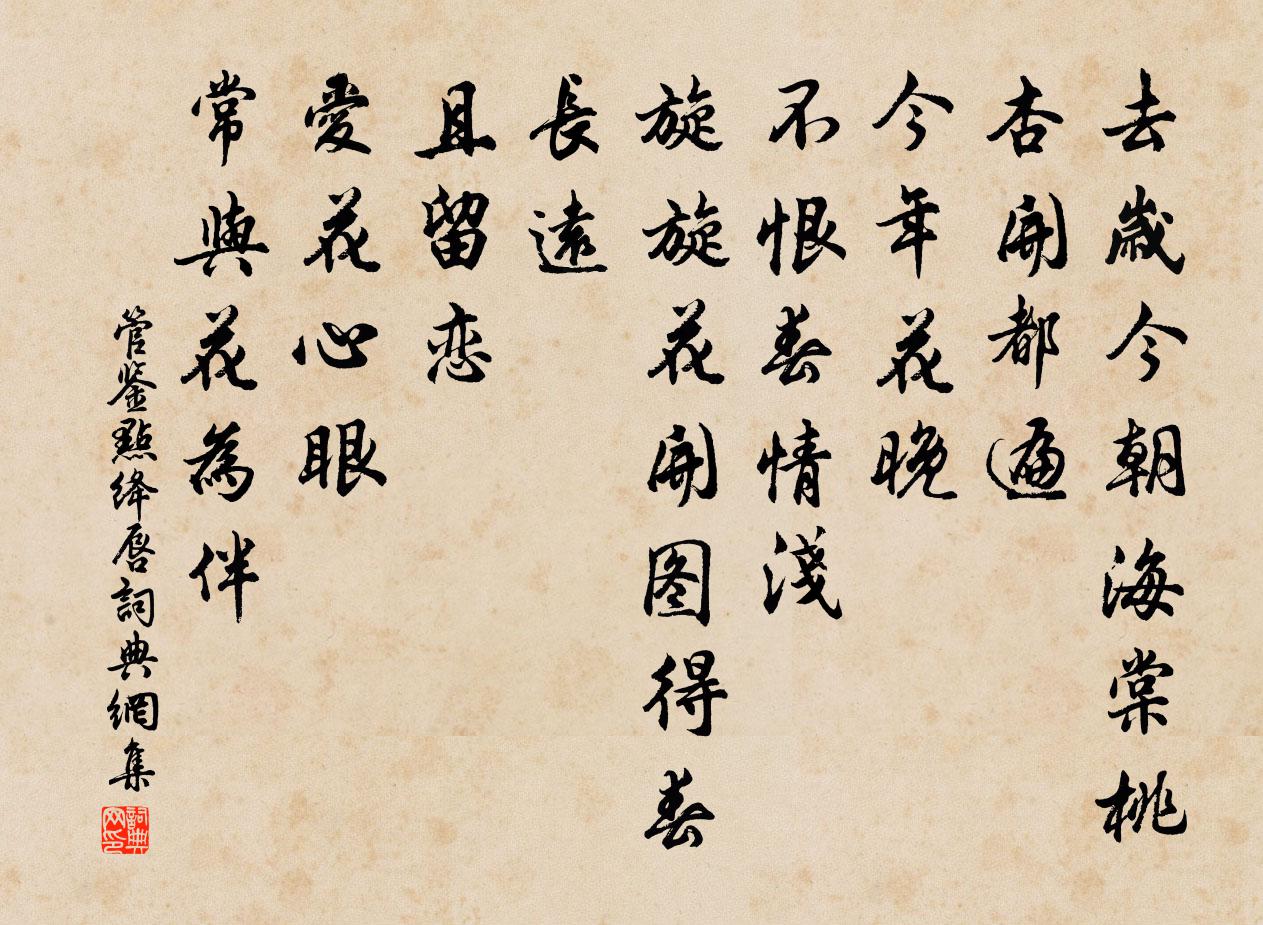 去歲今朝海棠桃
杏開都遍
今年花晚
不恨春情淺
旋旋花開图得春
長遠
且留恋
愛花心眼
常與花為伴
管鉴點絳唇詞典網集
詞典网印